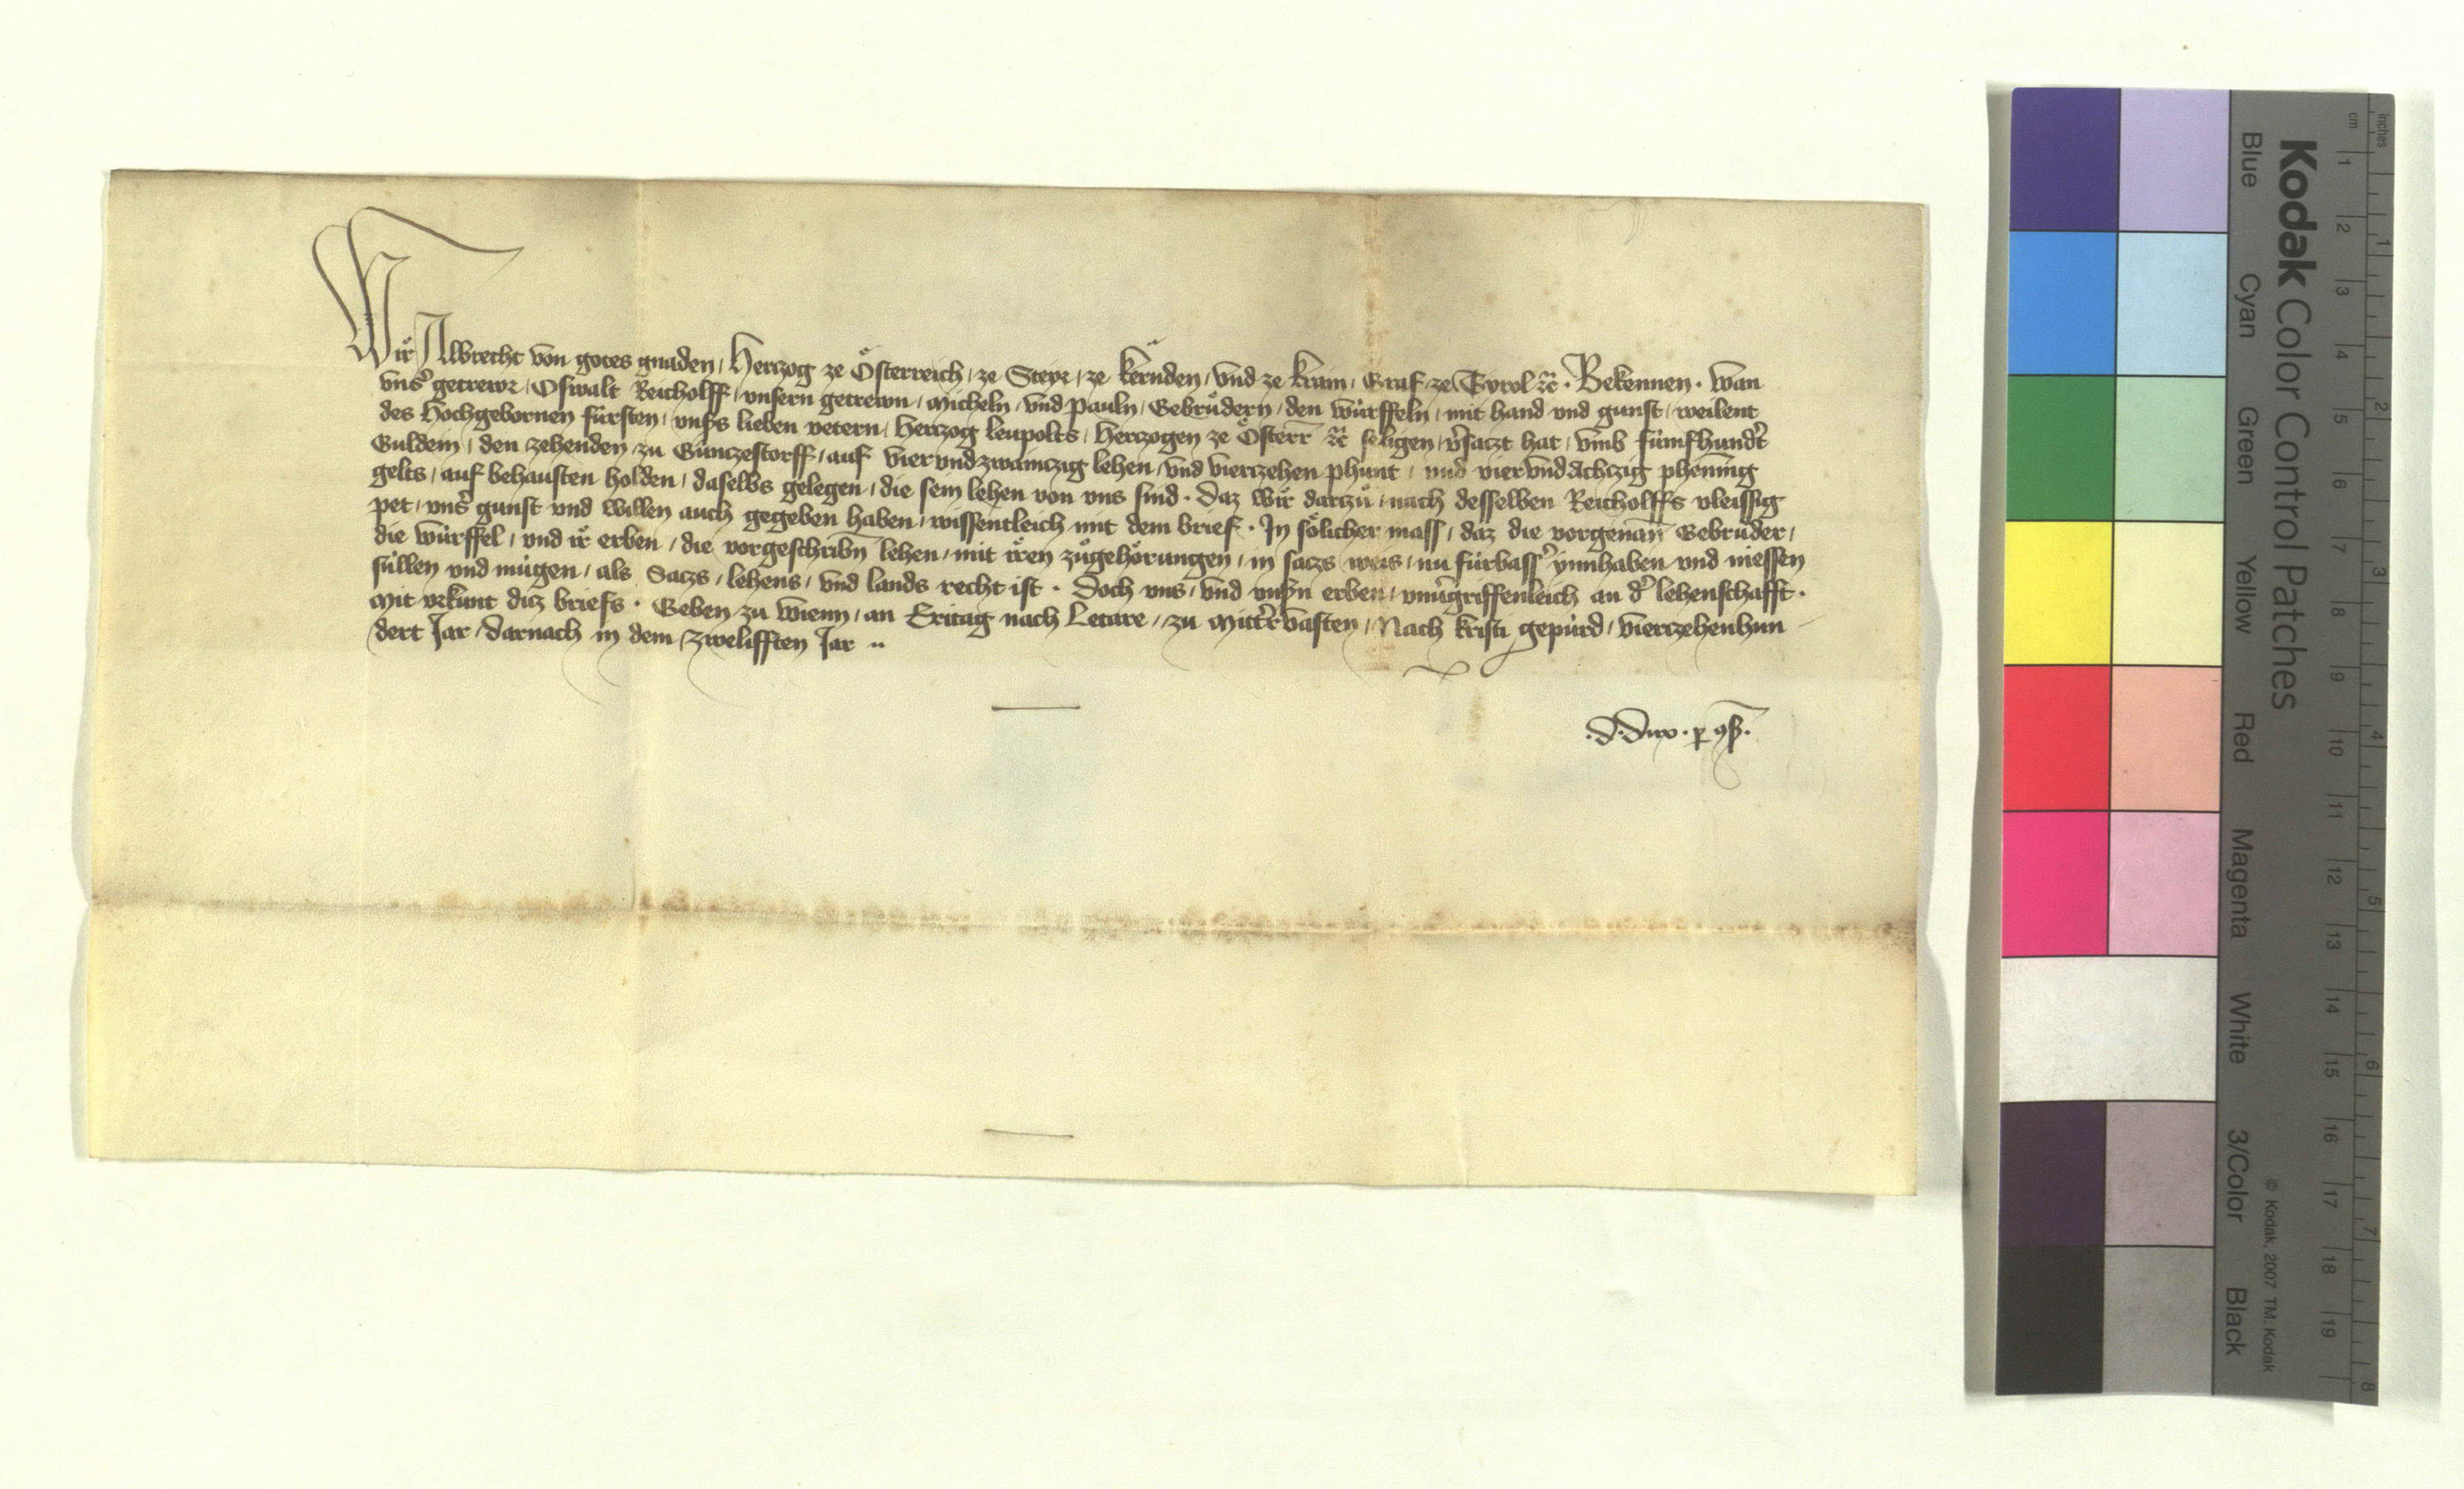 Wir Albrecht von gotes gnaden, Herczog ze Österreich, ze Steyr, ze Kernden, vnd ze Krain, Graf ze Tyrol ꝛc̃. Bekennen. Wan
vns̾ getrewr, Oswalt Reicholff, vnsern getrewn, Micheln, vnd Pauln, Gebrůdern, den Würffeln, mit hand vnd gunst, weilent
des Hochgebornen fürsten, vnss lieben vetern, Herczog Leupolts, Herczogen ze Österr̃ ꝛc̃ seligen, v̾saczt hat, vmb fümfhund̾t
Guldein, den zehenden, zu Günczestorff, auf viervndzwainczig lehen, vnd vierczehen phunt, vnd viervndachczig phennīg
gelts, auf behausten holden, daselbs gelegen, die sein lehen von vns sind. Daz wir darczů, nach desselben Reicholffs vleissig
pet, vns̾ gunst vnd willen auch gegeben haben, wissentleich mit dem brief. In sölicher mass, daz die vorgenan̄ Gebrůder,
die Würffel, vnd ir erben, die vorgeschribn̄ lehen, mit iren zůgehörungen, in saczs weis, nu fürbass̾ ynnhaben vnd niessen
süllen vnd mügen, als Saczs, lehens, vnd lands recht ist. Doch vns, vnd vnsn̄ erben, vnu̾griffenleich an d̾ lehenschafft.
Mit vrkunt dicz briefs. Geben zu Wienn, an Eritag nach Letare, zu Mitt̾vasten, Nach kristi gepürd, vierczehenhun
dert Jar, darnach in dem zwelifften Jar ..
.d. Dux . p ꝯß.
Kodak Color Control Patches
Blue Cyan Green Yellow Red Magenta White 3/Color Black
© Kodak, 2007 TM: Kodak
cm 1 2 3 4 5 6 7 8 9 10 11 12 13 14 15 16 17 18 19
inches 1 2 3 4 5 6 7 8